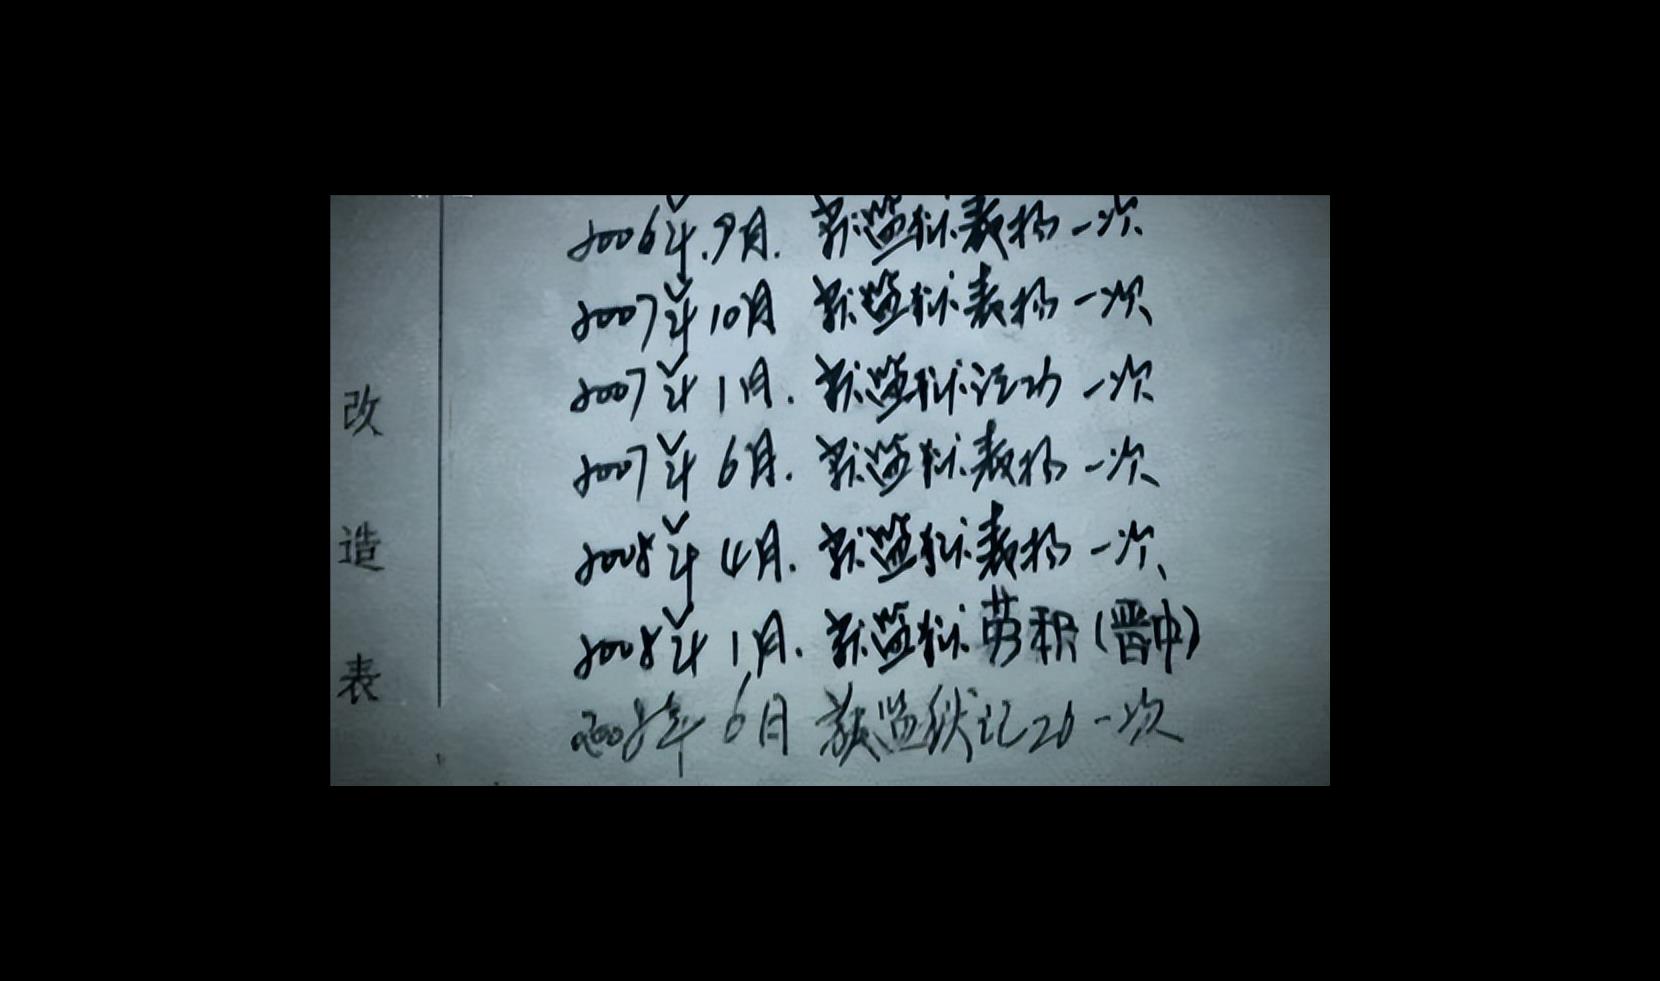 2006年.9月.获监狱表扬一次
2007年10月 获监狱表扬一次
2007年1月.获监狱记功一次
2007年6月.获监狱表扬一次
2008年4月.获监狱表扬一次
2008年1月.获监狱劳积(晋中)
2008年6月 获监狱记功一次
改造表